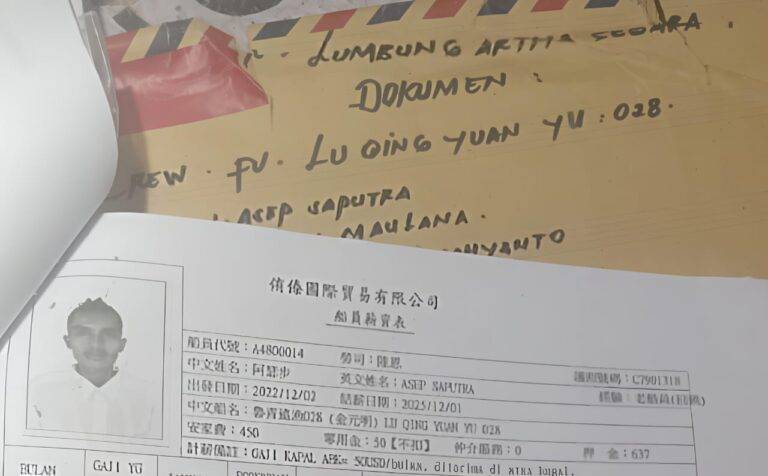 . LUMBUNG ARTHA SEGARA .
DOKUMEN :
CREW . FV . LU QING YUAN YU : 028 .
ASEP SAPUTRA
MAULANA .
國際貿易有限公司
船員薪資表
船員代號：A4800014
中文姓名：阿 英文姓名：ASEP SAPUTRA 護照號碼：C7901318
出發日期：2022/12/02 結薪日期：2025/12/01
中文船名：魯青遠漁028 (金元明) LU QING YUAN YU 028
安家費：450 零用金：50【不扣】 仲介服務：0 押 金：637
計薪備註：GAJI KAPAL 50USD/bulan, diterima di atas kapal.
BULAN GAJI YG